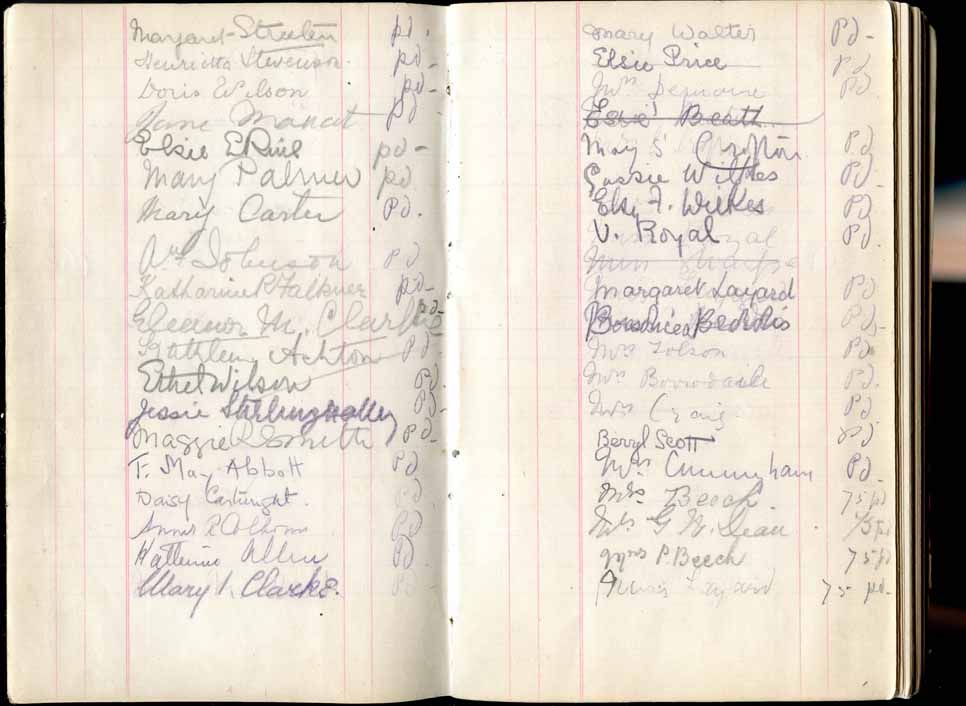 Margaret Streeten pd.
Henrietta Stevenson. pd-
Doris Wilson pd-
Jane pd-
Elsie E pd-
Mary Palmer pd
Mary Carter Pd.
Johnson Pd
Katharine R Falkner pd-
Eleanor M. Clarke pd-
Kathleen Ashton Pd.
Ethel Wilson Pd.
Jessie Stirling Pd-
Maggie R Smith Pd-
F. May Abbott Pd
Daisy Cartwright. Pd
Annie Pd
Katherine Allen Pd
Mary I. Clarke. Pd
Mary Walter Pd-
Elsie Price Pd
Mrs Pd
Essie Beath
May S Crofton Pd
Cassie Wilkes Pd-
Elsie F. Wilkes Pd
V. Royal Pd.
Miss Sharpe
Margaret Layard Pd
Boadicea Pd-
Mrs Tolson Pd
Mrs Borrodaile Pd.
Mrs Craig Pd
Beryl Scott pd
Mrs Cunningham Pd.
Mrs Beech 75 pd
Mrs G. W. Dean 75 pd
Miss P. Beech 75 pd
Layard 75 pd.